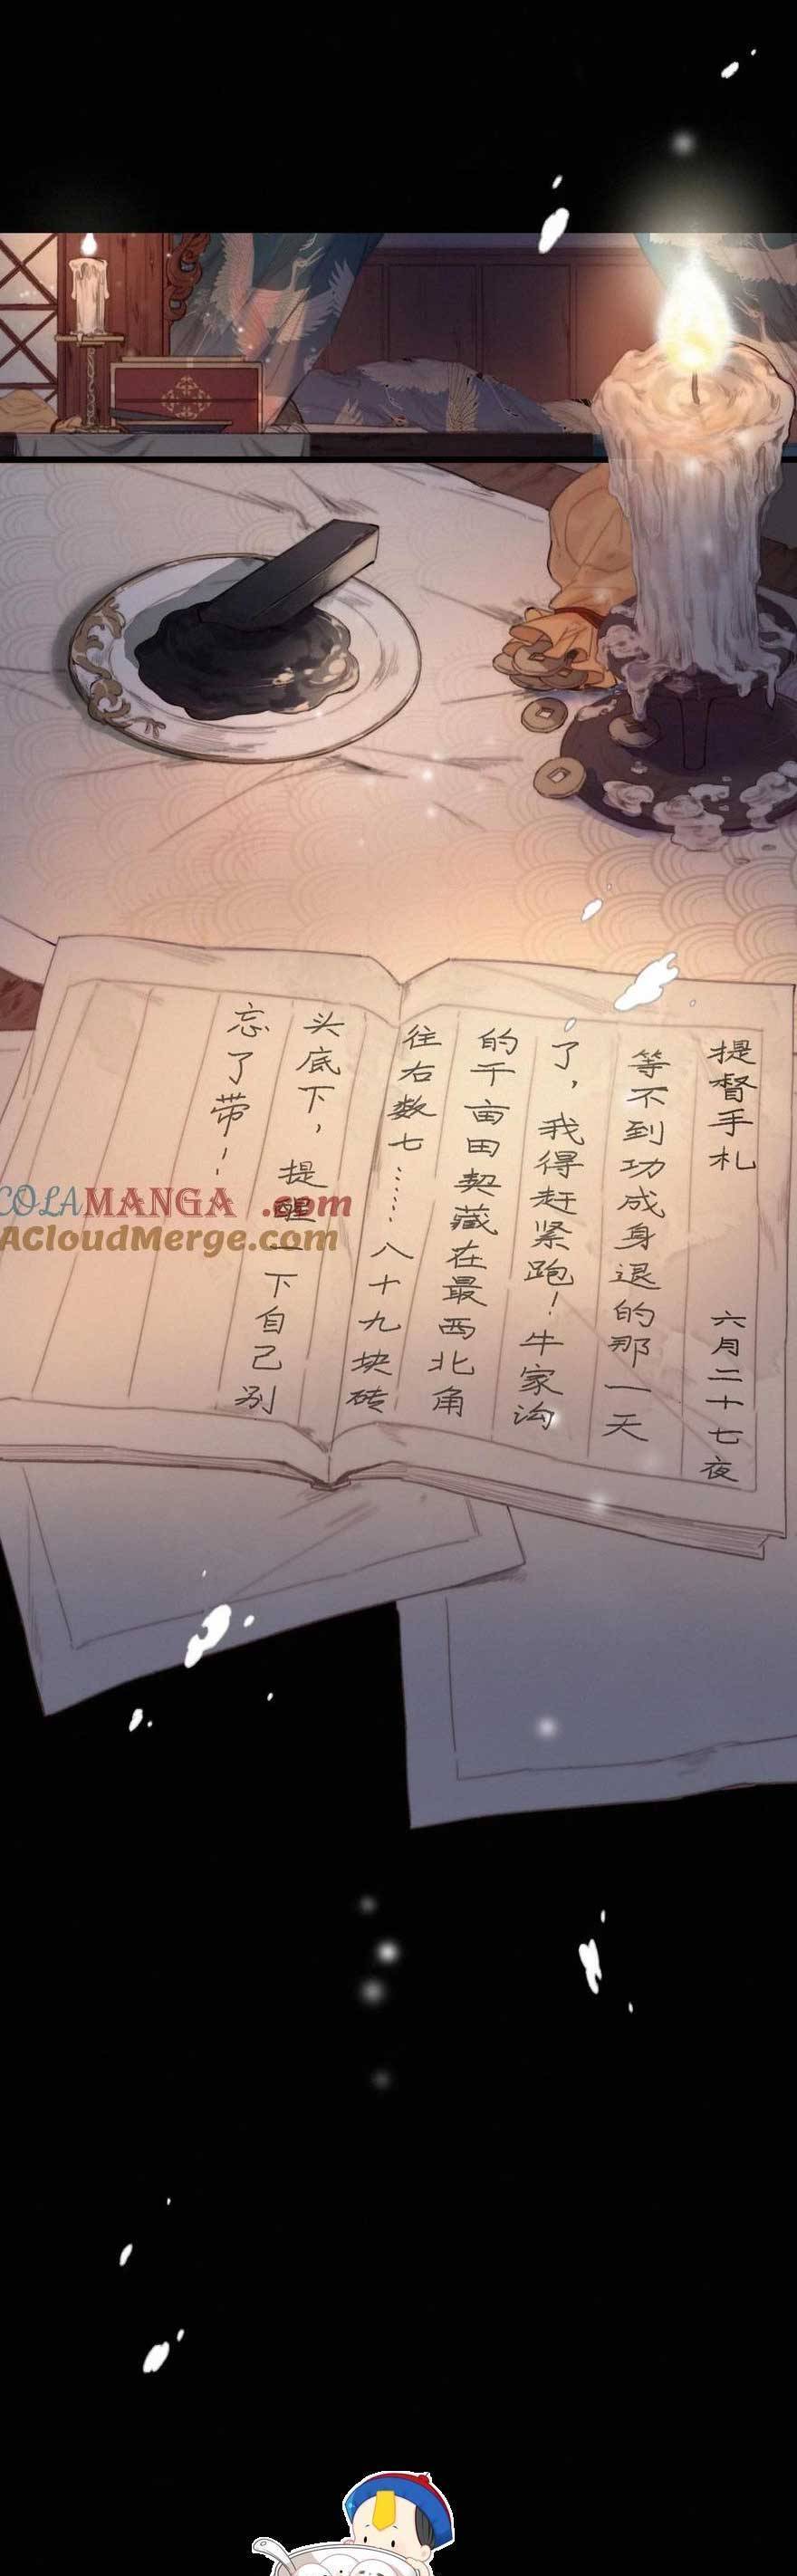 提督手札 六月二十七夜
等不到功成身退的那一天
了，我得赶紧跑！牛家沟
的千亩田契藏在最西北角
往右数七……八十九块砖
头底下，提醒一下自己别
忘了带！
COLAMANGA.com
ACloudMerge.com